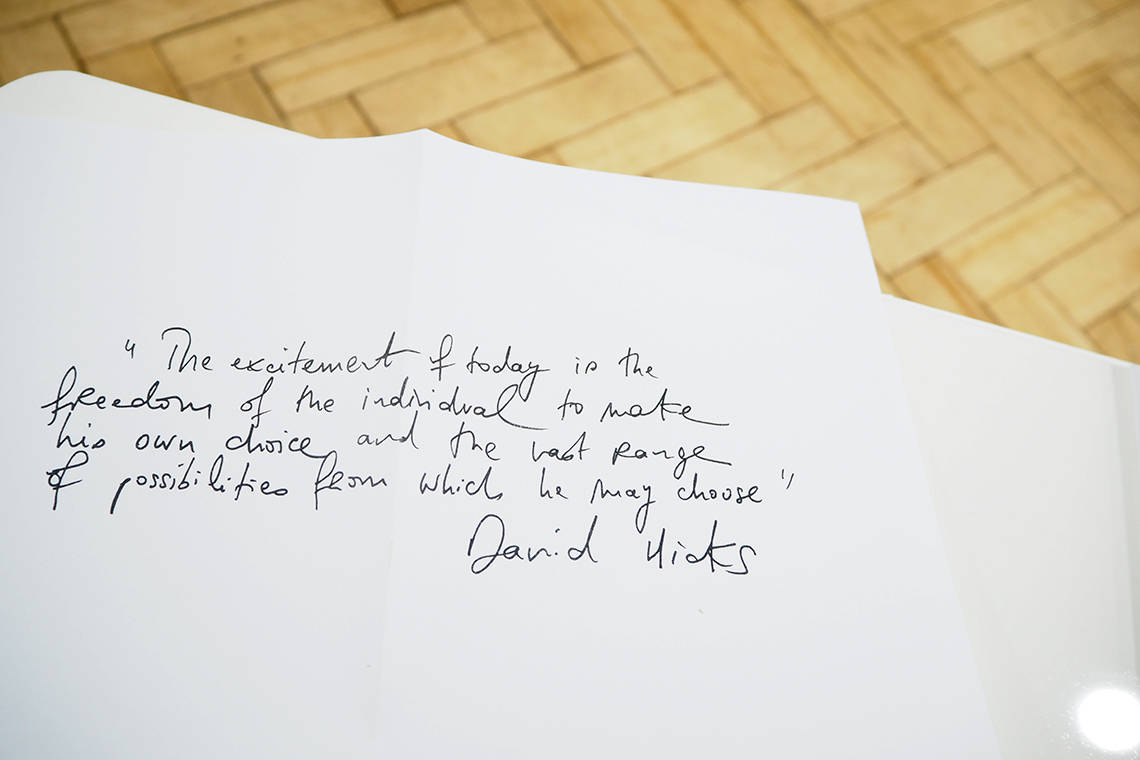 "The excitement of today is the
freedom of the individual to make
his own choice and the vast range
of possibilities from which he may choose"
David Hicks